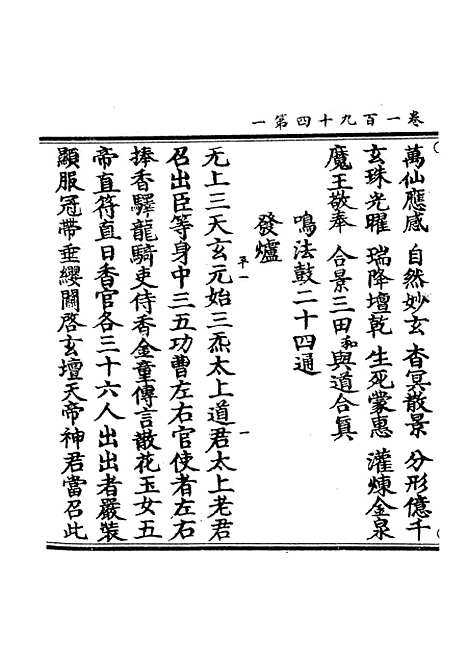 卷一百九十四第一
萬仙應感　自然妙玄　杳冥散景　分形億千
玄珠光曜　瑞降壇乾　生死蒙惠　灌煉金泉
魔王敬奉　合景三田和與道合真
鳴法鼓二十四通
發爐
平一　一
无上三天玄元始三炁太上道君太上老君
召出臣等身中三五功曹左右官使者左右
捧香驛龍騎吏侍香金童傳言散花玉女五
帝直符直日香官各三十六人出出者嚴裝
顯服冠帶垂纓關啓玄壇天帝神君當召此